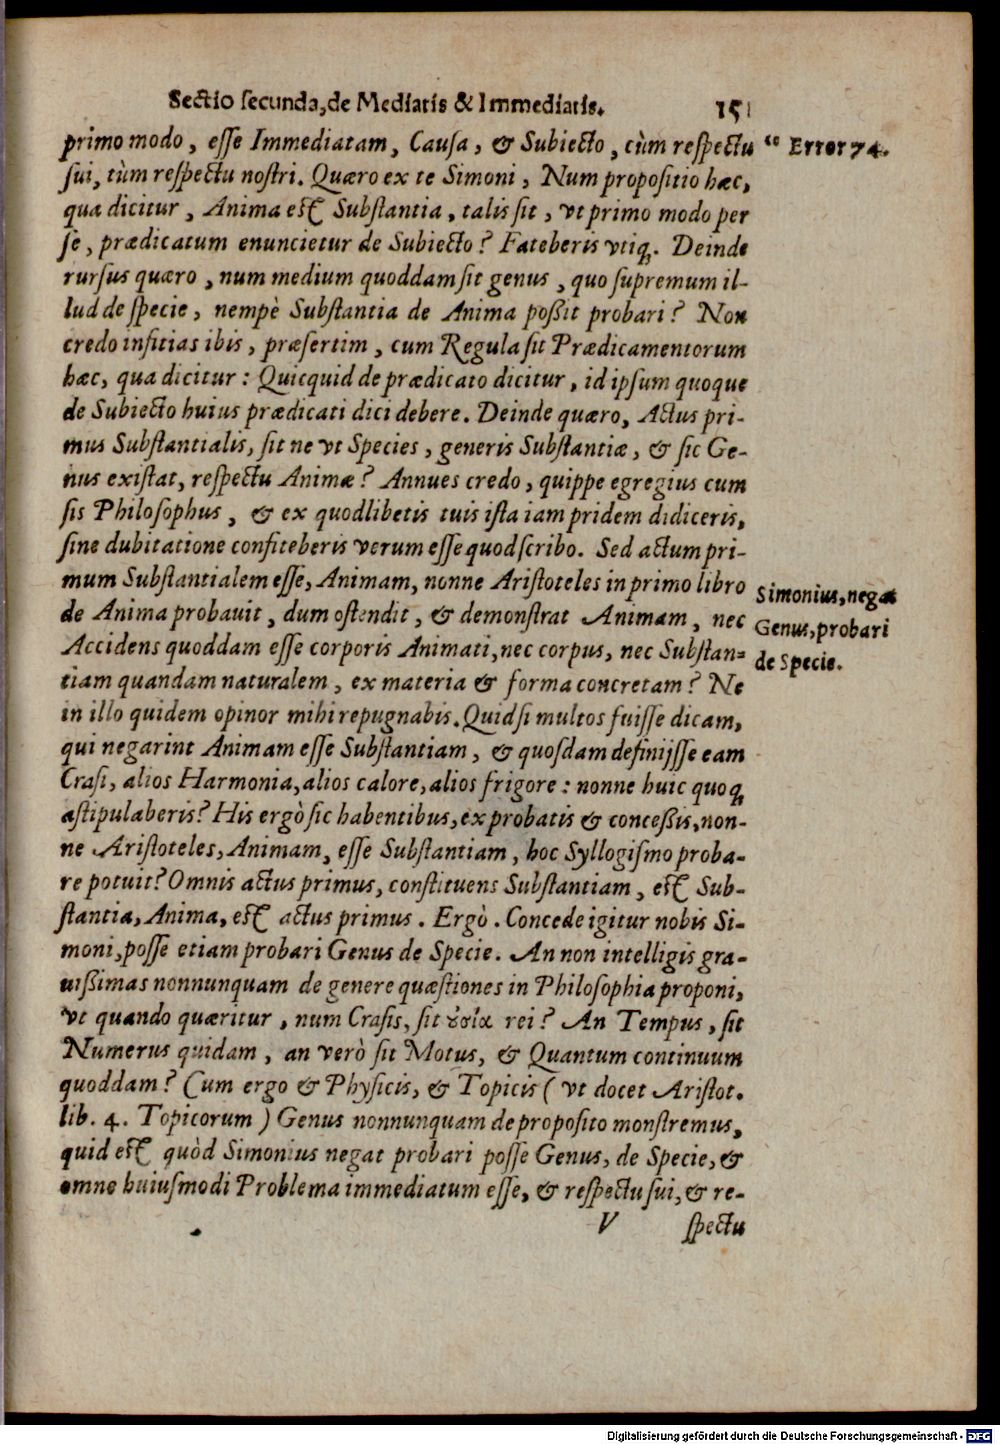 Sectio secunda, de Mediatis & Immediatis. 151
primo modo, esse Immediatam, Causa, & Subiecto, cùm respectu “ Error 74.
sui, tùm respectu nostri. Quæro ex te Simoni, Num propositio hæc,
qua dicitur, Anima est Substantia, talis sit, vt primo modo per
se, prædicatum enuncietur de Subiecto? Fateberis vtiq;. Deinde
rursus quæro, num medium quoddam sit genus, quo supremum il-
lud de specie, nempè Substantia de Anima poßit probari? Non
credo inficias ibis, præsertim, cum Regula sit Prædicamentorum
hæc, qua dicitur: Quicquid de prædicato dicitur, id ipsum quoque
de Subiecto huius prædicati dici debere. Deinde quæro, Actus pri-
mus Substantialis, sit ne vt Species, generis Substantiæ, & sic Ge-
nus existat, respectu Animæ? Annues credo, quippe egregius cum
sis Philosophus, & ex quodlibetis tuis ista iam pridem didiceris,
sine dubitatione confiteberis verum esse quod scribo. Sed actum pri-
mum Substantialem esse, Animam, nonne Aristoteles in primo libro
de Anima probauit, dum ostendit, & demonstrat Animam, nec
Accidens quoddam esse corporis Animati, nec corpus, nec Substan-
tiam quandam naturalem, ex materia & forma concretam? Ne
in illo quidem opinor mihi repugnabis. Quid si multos fuisse dicam,
qui negarint Animam esse Substantiam, & quosdam definijsse eam
Crasi, alios Harmonia, alios calore, alios frigore: nonne huic quoq;
astipulaberis? His ergò sic habentibus, ex probatis & conceßis, non-
ne Aristoteles, Animam, esse Substantiam, hoc Syllogismo proba-
re potuit? Omnis actus primus, constituens Substantiam, est Sub-
stantia, Anima, est actus primus. Ergò. Concede igitur nobis Si-
moni, posse etiam probari Genus de Specie. An non intelligis gra-
uißimas nonnunquam de genere quæstiones in Philosophia proponi,
vt quando quæritur, num Crasis, sit ȣσία rei? An Tempus, sit
Numerus quidam, an verò sit Motus, & Quantum continuum
quoddam? Cum ergo & Physicis, & Topicis (vt docet Aristot.
lib. 4. Topicorum) Genus nonnunquam de proposito monstremus,
quid est quòd Simonius negat probari posse Genus, de Specie, &
omne huiusmodi Problema immediatum esse, & respectu sui, & re-
V spectu
Simonius, negat
Genus, probari
de Specie.
Digitalisierung gefördert durch die Deutsche Forschungsgemeinschaft - DFG